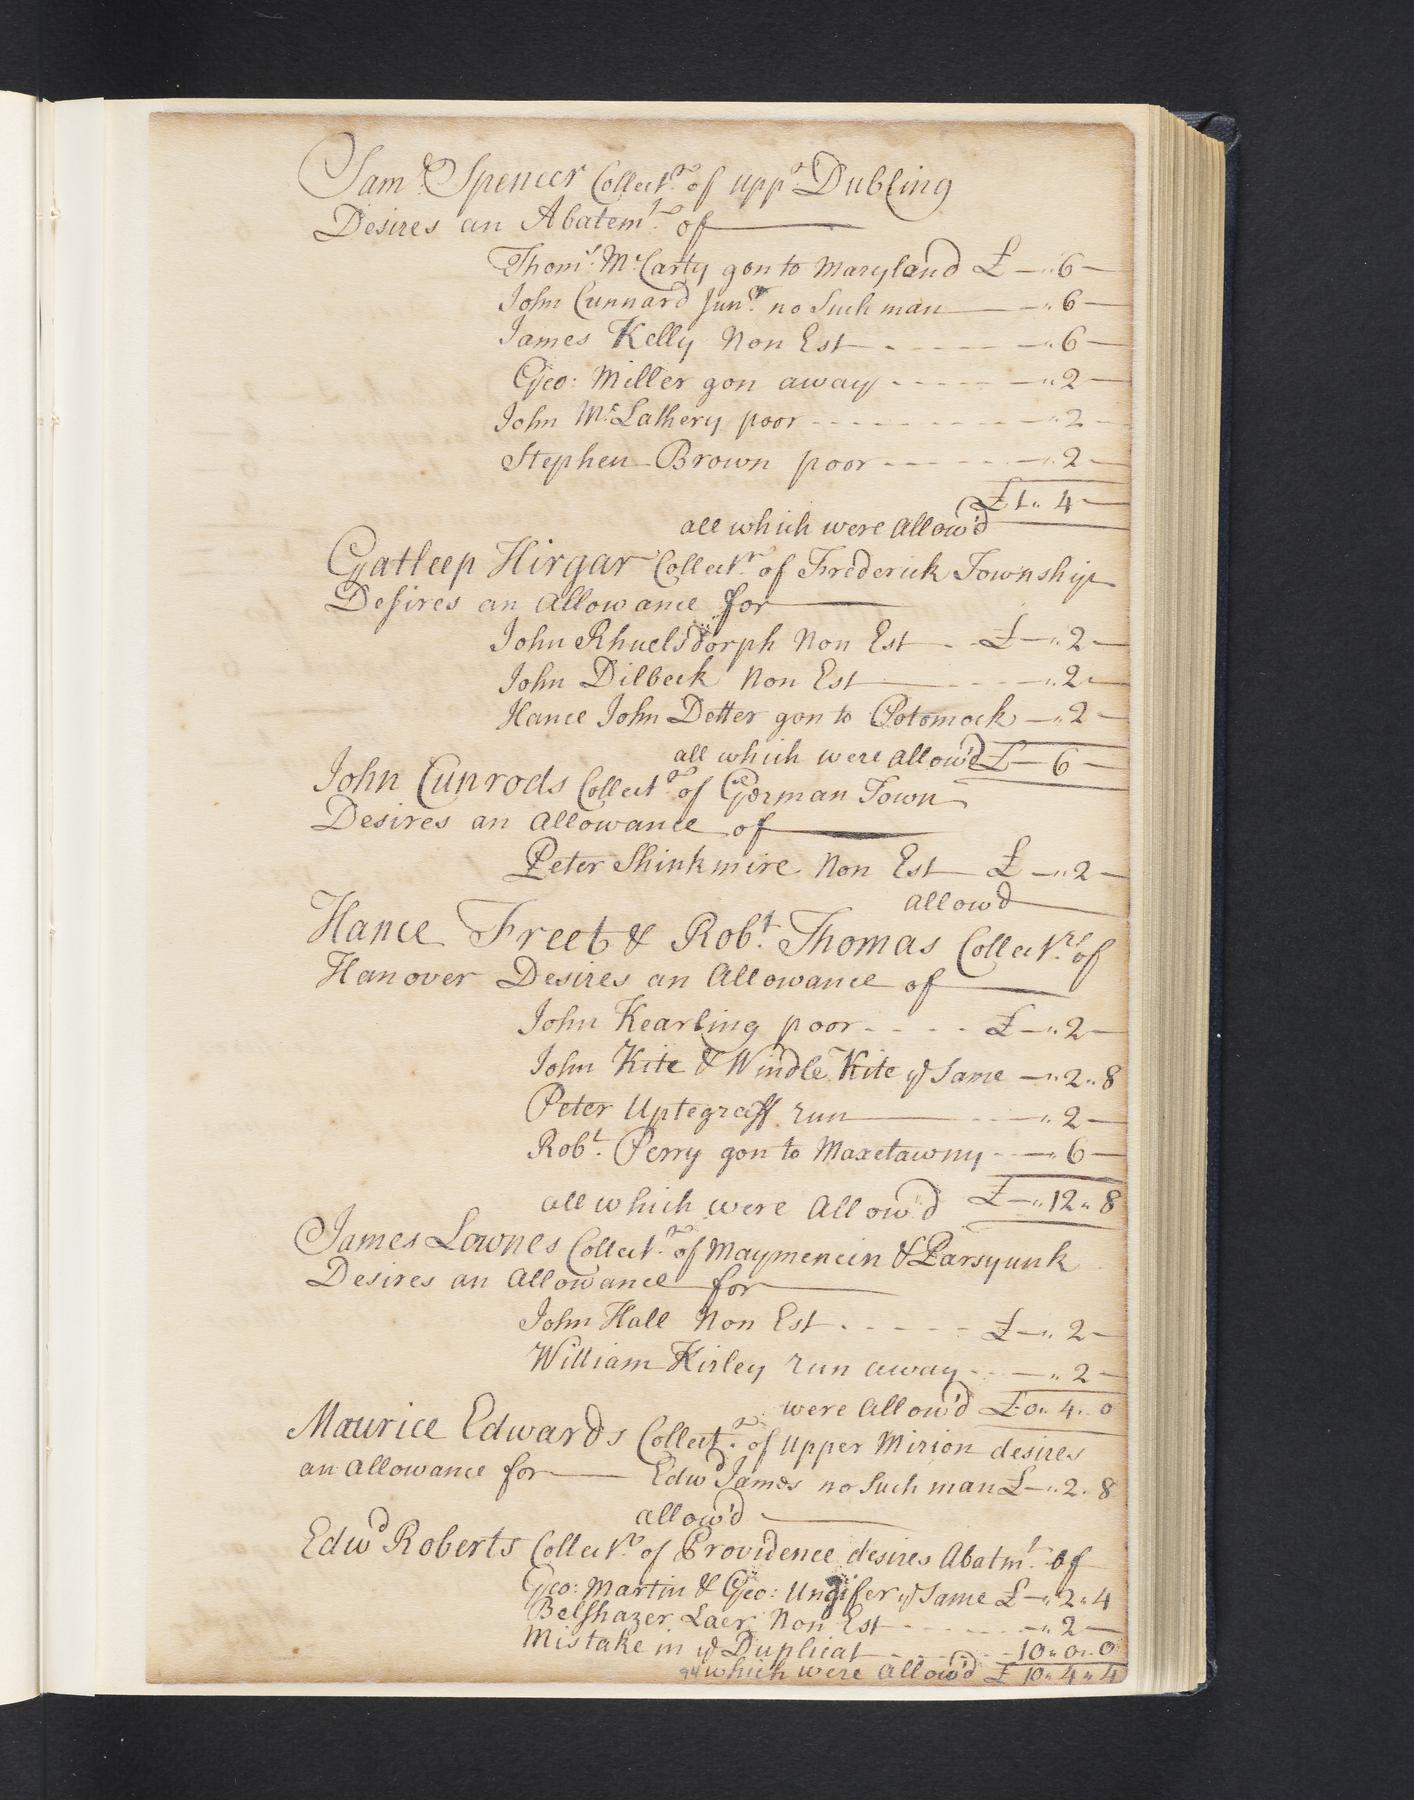 Sam.ll Spencer Collect.r of upp.r Dubling
Desires an Abatem.t of
Thom.s McCarty gon to Maryland £ — „ 6 —
John Cunnard Jun.r no Such man — „ 6 —
James Kelly Non Est - - - - — „ 6 —
Geo: Miller gon away - - - - - — „ 2 —
John McLathery poor - - - - - - - — „ 2 —
Stephen Brown poor - - - - - — „ 2 —
£ 1 „ 4 —
all which were Allow'd
Gatleep Hirgar Collect.r of Frederick Township
Desires an Allowance for
John Rhuelsdorph Non Est - - £ — „ 2 —
John Dilbeck Non Est - - - — „ 2 —
Hance John Detter gon to Potomock — „ 2 —
all which were allow'd £ — 6 —
John Cunrods Collect.r of German Town
Desires an Allowance of
Peter Shinkmire Non Est £ — „ 2 —
allowd
Hance Freet & Rob.t Thomas Collect.rs of
Hanover Desires an Allowance of
John Kearling poor - - - - £ — „ 2 —
John Kite & Windle Kite ye Same — „ 2 „ 8
Peter Uptegraff run - - - — „ 2 —
Rob.t Perry gon to Maxetawny - - — „ 6 —
all which were Allow'd £ — „ 12 „ 8
James Lownes Collect.r of Maymencin & Parsyunk
Desires an Allowance for
John Hall Non Est - - - - - £ — „ 2 —
William Kirley run away - - - — „ 2 —
were Allow'd £ 0 „ 4 „ 0
Maurice Edwards Collect.r of Upper Mirion desires
an allowance for — Edwd James no Such man £ — „ 2 „ 8
allow'd
Edwd Roberts Collect.r of Providence desires Abatm.t of
Geo: Martin & Geo: Ungifer ye Same £ — „ 2 „ 4
Belshazer Laer Non Est - - - - — „ 2 —
Mistake in ye Duplicat - - - - - 10 „ 0 „ 0
which were Allow'd £ 10 „ 4 „ 4